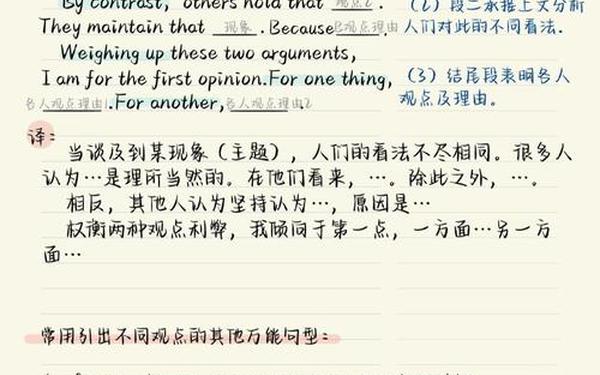 By contrast, others hold that 观点2 .
They maintain that 现象 . Because 观点理由 .
Weighing up these two arguments,
I am for the first opinion. For one thing,
各人观点理由1 . For another, 各人观点理由2 .
(2) 段二承接上文分析
人们对此的不同看法。
(3) 结尾段表明各人
观点及理由。
译:
当谈及到某现象(主题),人们的看法不尽相同。很多人
认为…是理所当然的。在他们看来,…。除此之外,…。
相反,其他人认为坚持认为…,原因是…
权衡两种观点利弊,我倾向于第一点,一方面…另一方
面…
常用引出不同观点的其他万能句型: